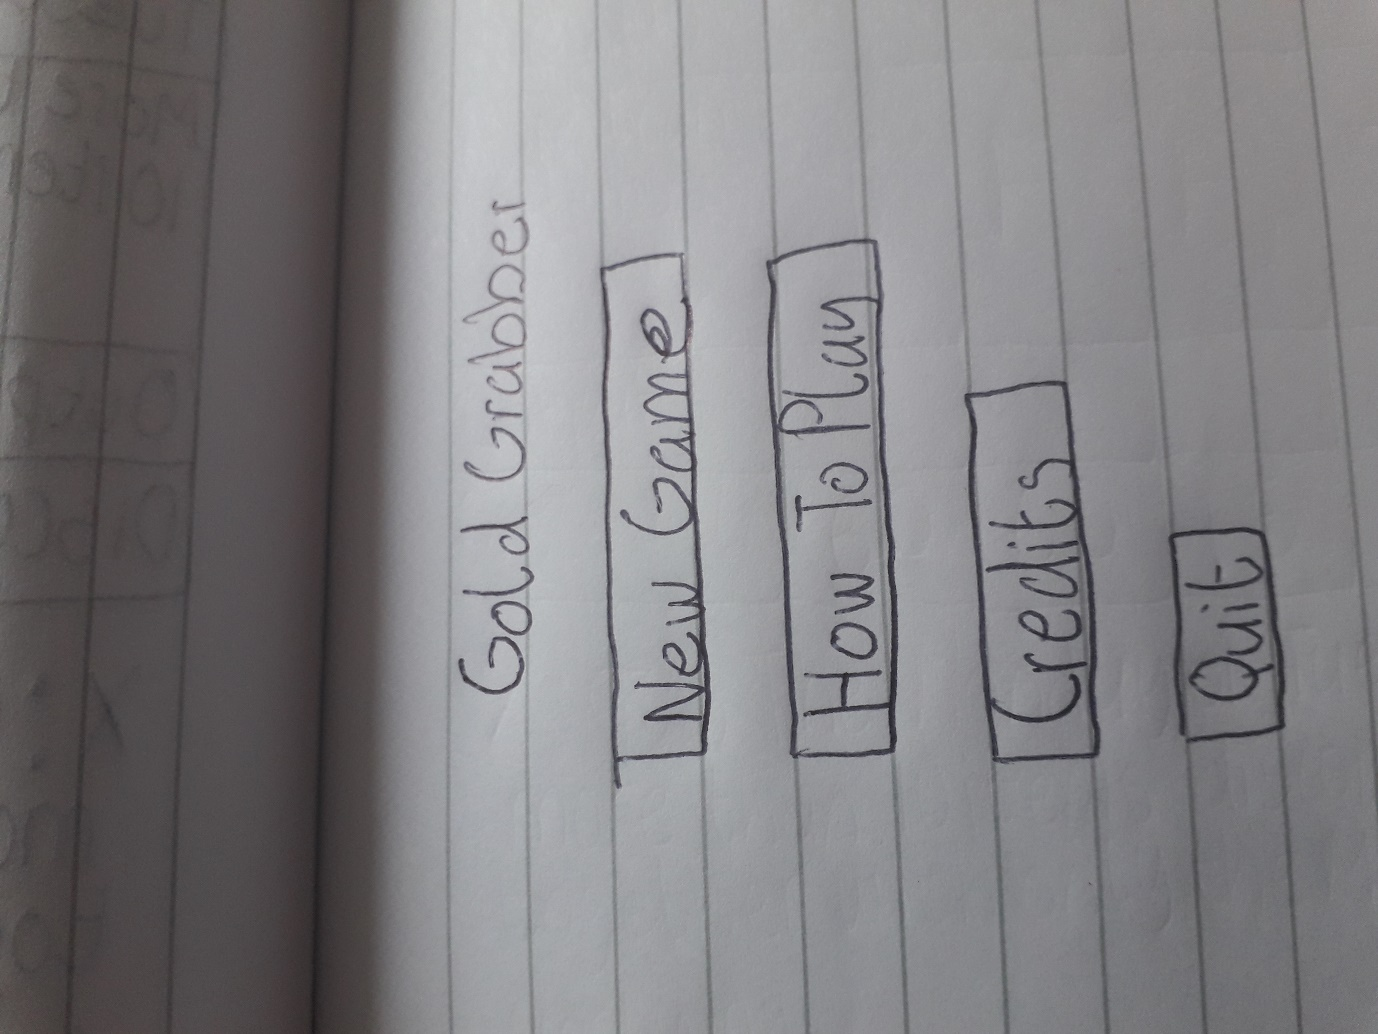 Gold Grabber
New Game
How To Play
Credits
Quit